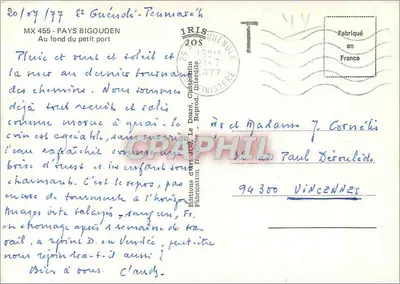 20/07/77 St Guénolé-Penmarch
MX 455 - PAYS BIGOUDEN
Au fond du petit port
Pluie et vent et soleil et
la mer au dernier tournant
des chemins. Nous sommes
déjà tout recuit et salés
comme morue à quai. Le
coin est agréable, sans
l'eau rafraîchit comme
boise d'ouest et les enfants sont
charmants. C'est le repos, pas
encore de tourmente à l'horizon
Nuages vite balayés, sauf un, Fr.
en chomage après 1 semaine de tra-
vail, a rejoint D. en Vendée, peut-être
nous rejoindra-t-il aussi ?
Bien à vous. Claude
IRIS
JOS
Editions d'art JOS, Le Doaré, Châteaulin
Fabrication Reprod. interdite
GUENOLE
1977
FINISTERE
T
Fabriqué
en
France
CPHPHIL
M et Madame J. Cornélis
35 av Paul Déroulède
94300 VINCENNES